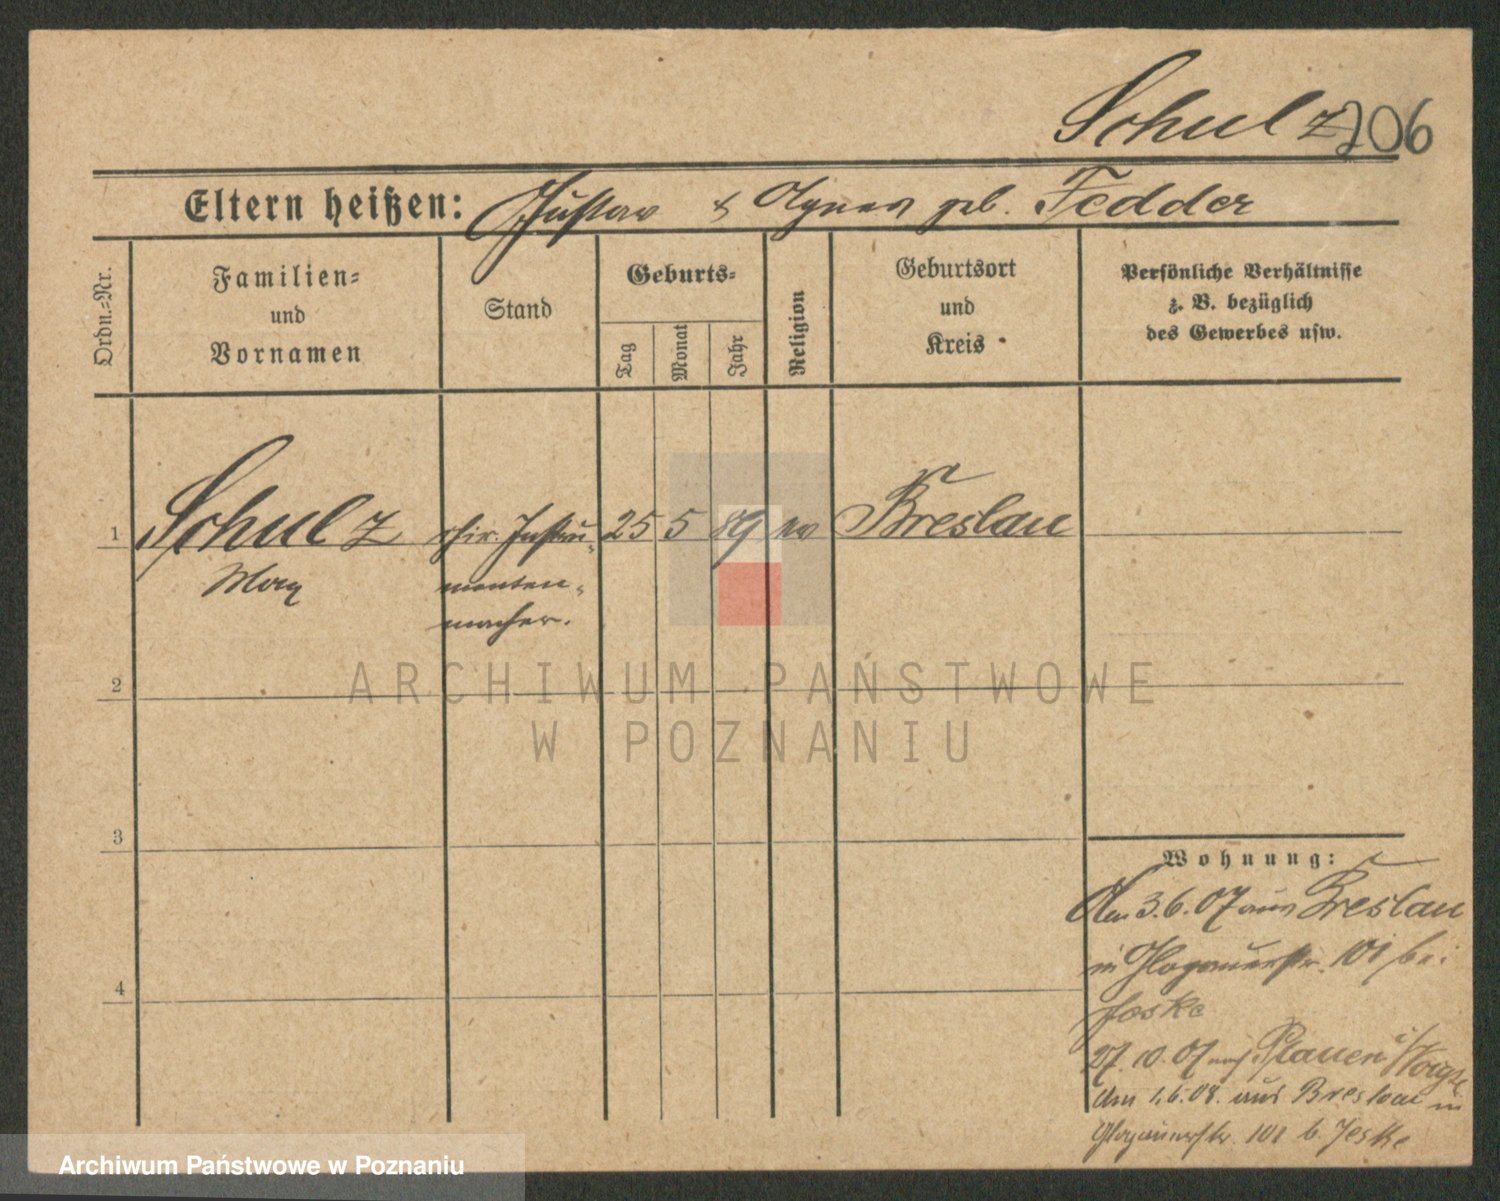 Schulz 206
Eltern heißen: Gustav & Agnes geb. Fedder
Ordn.-Nr.
Familien-
und
Vornamen
Stand
Geburts-
Tag
Monat
Jahr
Religion
Geburtsort
und
Kreis
Persönliche Verhältnisse
z. B. bezüglich
des Gewerbes usw.
1 Schulz chir. Instru- 25 5 89 ev Breslau
Max menten-
macher.
2
3
4
Wohnung:
Am 3.6.07 aus Breslau
in Glogauerstr. 101 bei
Jeske
27.10.07 nach Plauen i/Voigtl
Am 1.6.08. aus Breslau in
Glogauerstr. 101 b. Jeske
ARCHIWUM PAŃSTWOWE
W POZNANIU
Archiwum Państwowe w Poznaniu